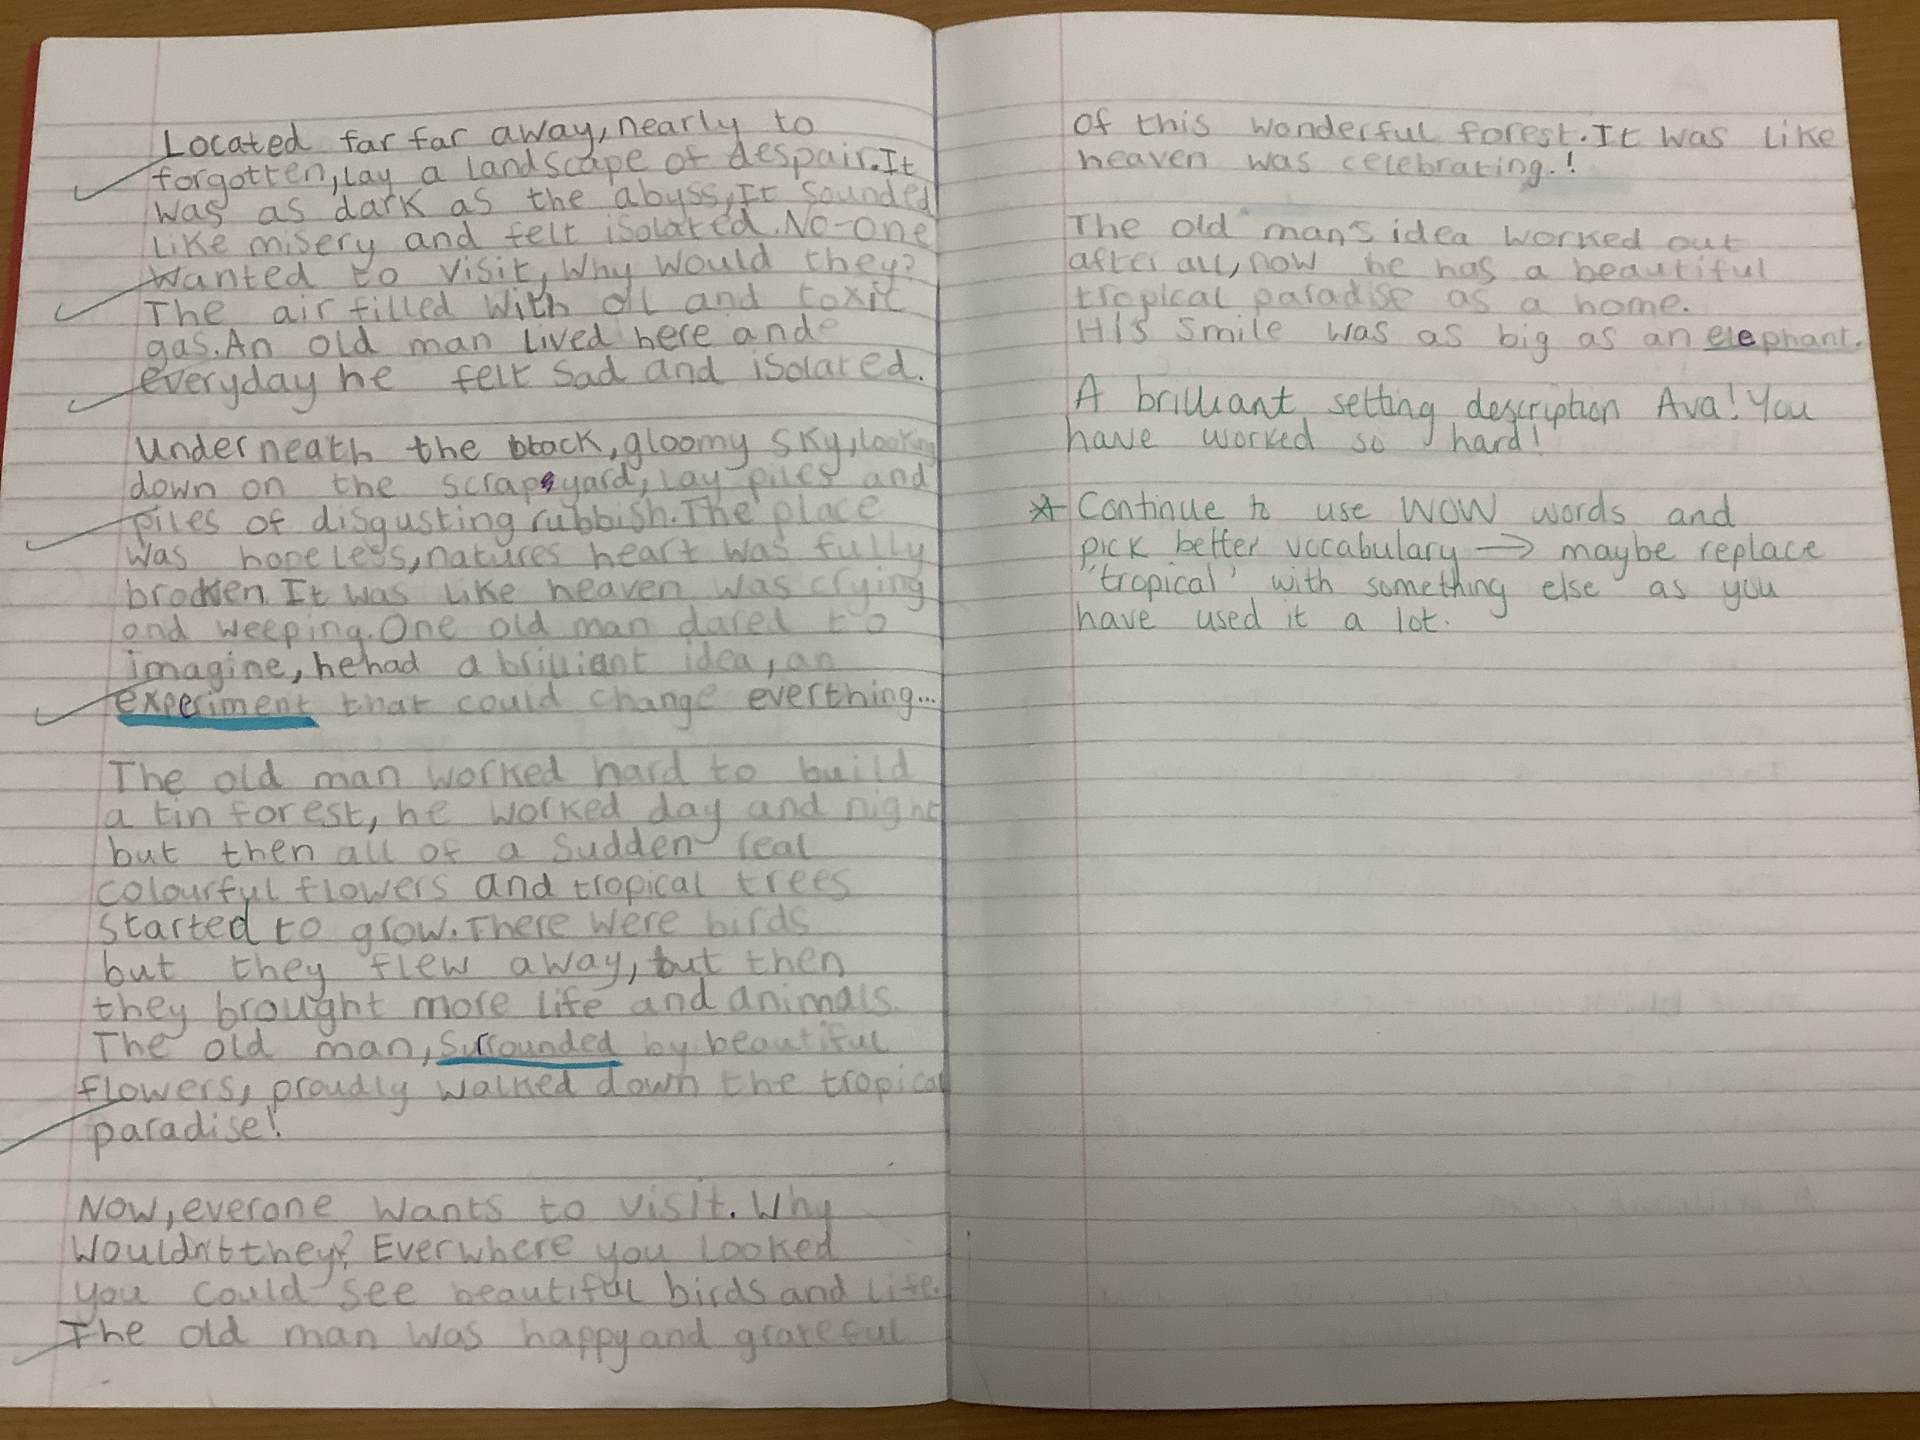 Located far far away, nearly to
forgotten, lay a landscape of despair. It
was as dark as the abyss, It sounded
like misery and felt isolated. No-one
wanted to visit, Why would they?
The air filled with oil and toxic
gas. An old man lived here and
everyday he felt sad and isolated.
Underneath the black, gloomy sky, looking
down on the scrapyard, lay piles and
piles of disgusting rubbish. The place
was hopeless, natures heart was fully
brocken. It was like heaven was crying
and weeping. One old man dared to
imagine, he had a brilliant idea, an
experiment that could change everthing...
The old man worked hard to build
a tin forest, he worked day and night
but then all of a sudden real
colourful flowers and tropical trees
started to grow. There were birds
but they flew away, but then
they brought more life and animals.
The old man, surrounded by beautiful
flowers, proudly walked down the tropical
paradise!
Now, everone wants to visit. Why
wouldn't they? Everwhere you looked
you could see beautiful birds and life.
The old man was happy and grateful
of this wonderful forest. It was like
heaven was celebrating.!
The old man's idea worked out
after all, now he has a beautiful
tropical paradise as a home.
His smile was as big as an elephant.
A brilliant setting description Ava! You
have worked so hard!
* Continue to use WOW words and
pick better vocabulary → maybe replace
'tropical' with something else as you
have used it a lot.